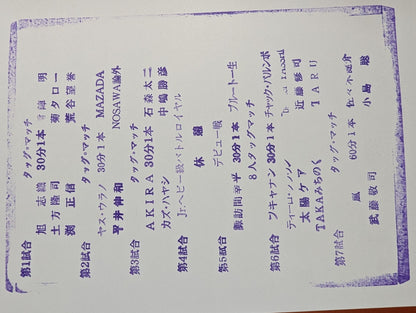 第1試合　タッグ・マッチ
旭　志織　30分1本　　明
土方隆司　菊タロー
渕　正信　荒谷望誉
第2試合　タッグ・マッチ
ヤス・ウラノ　30分1本　MAZADA
平井伸和　NOSAWA論外
第3試合　タッグ・マッチ
AKIRA　30分1本　石森太二
カズ・ハヤシ　中嶋勝彦
第4試合　Jr.ヘビー級バトルロイヤル
休憩
第5試合　デビュー戦
諏訪間幸平　30分1本　ブルート一生
第6試合　8人タッグマッチ
ブキャナン　30分1本　チャック・パルンボ
太陽ケア　近藤修司
TAKAみちのく　TARU
第7試合　タッグ・マッチ
嵐　60分1本
武藤敬司　小島　聡